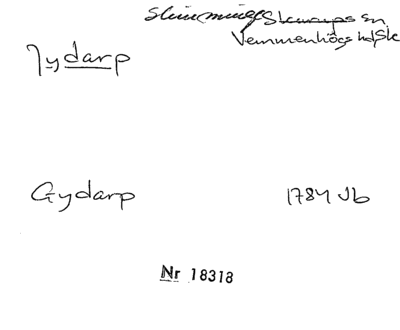 Slimminge Skurups sn
Vemmenhögs hd Sk
Jydarp
Gydarp 1784 Jb
Nr 18318